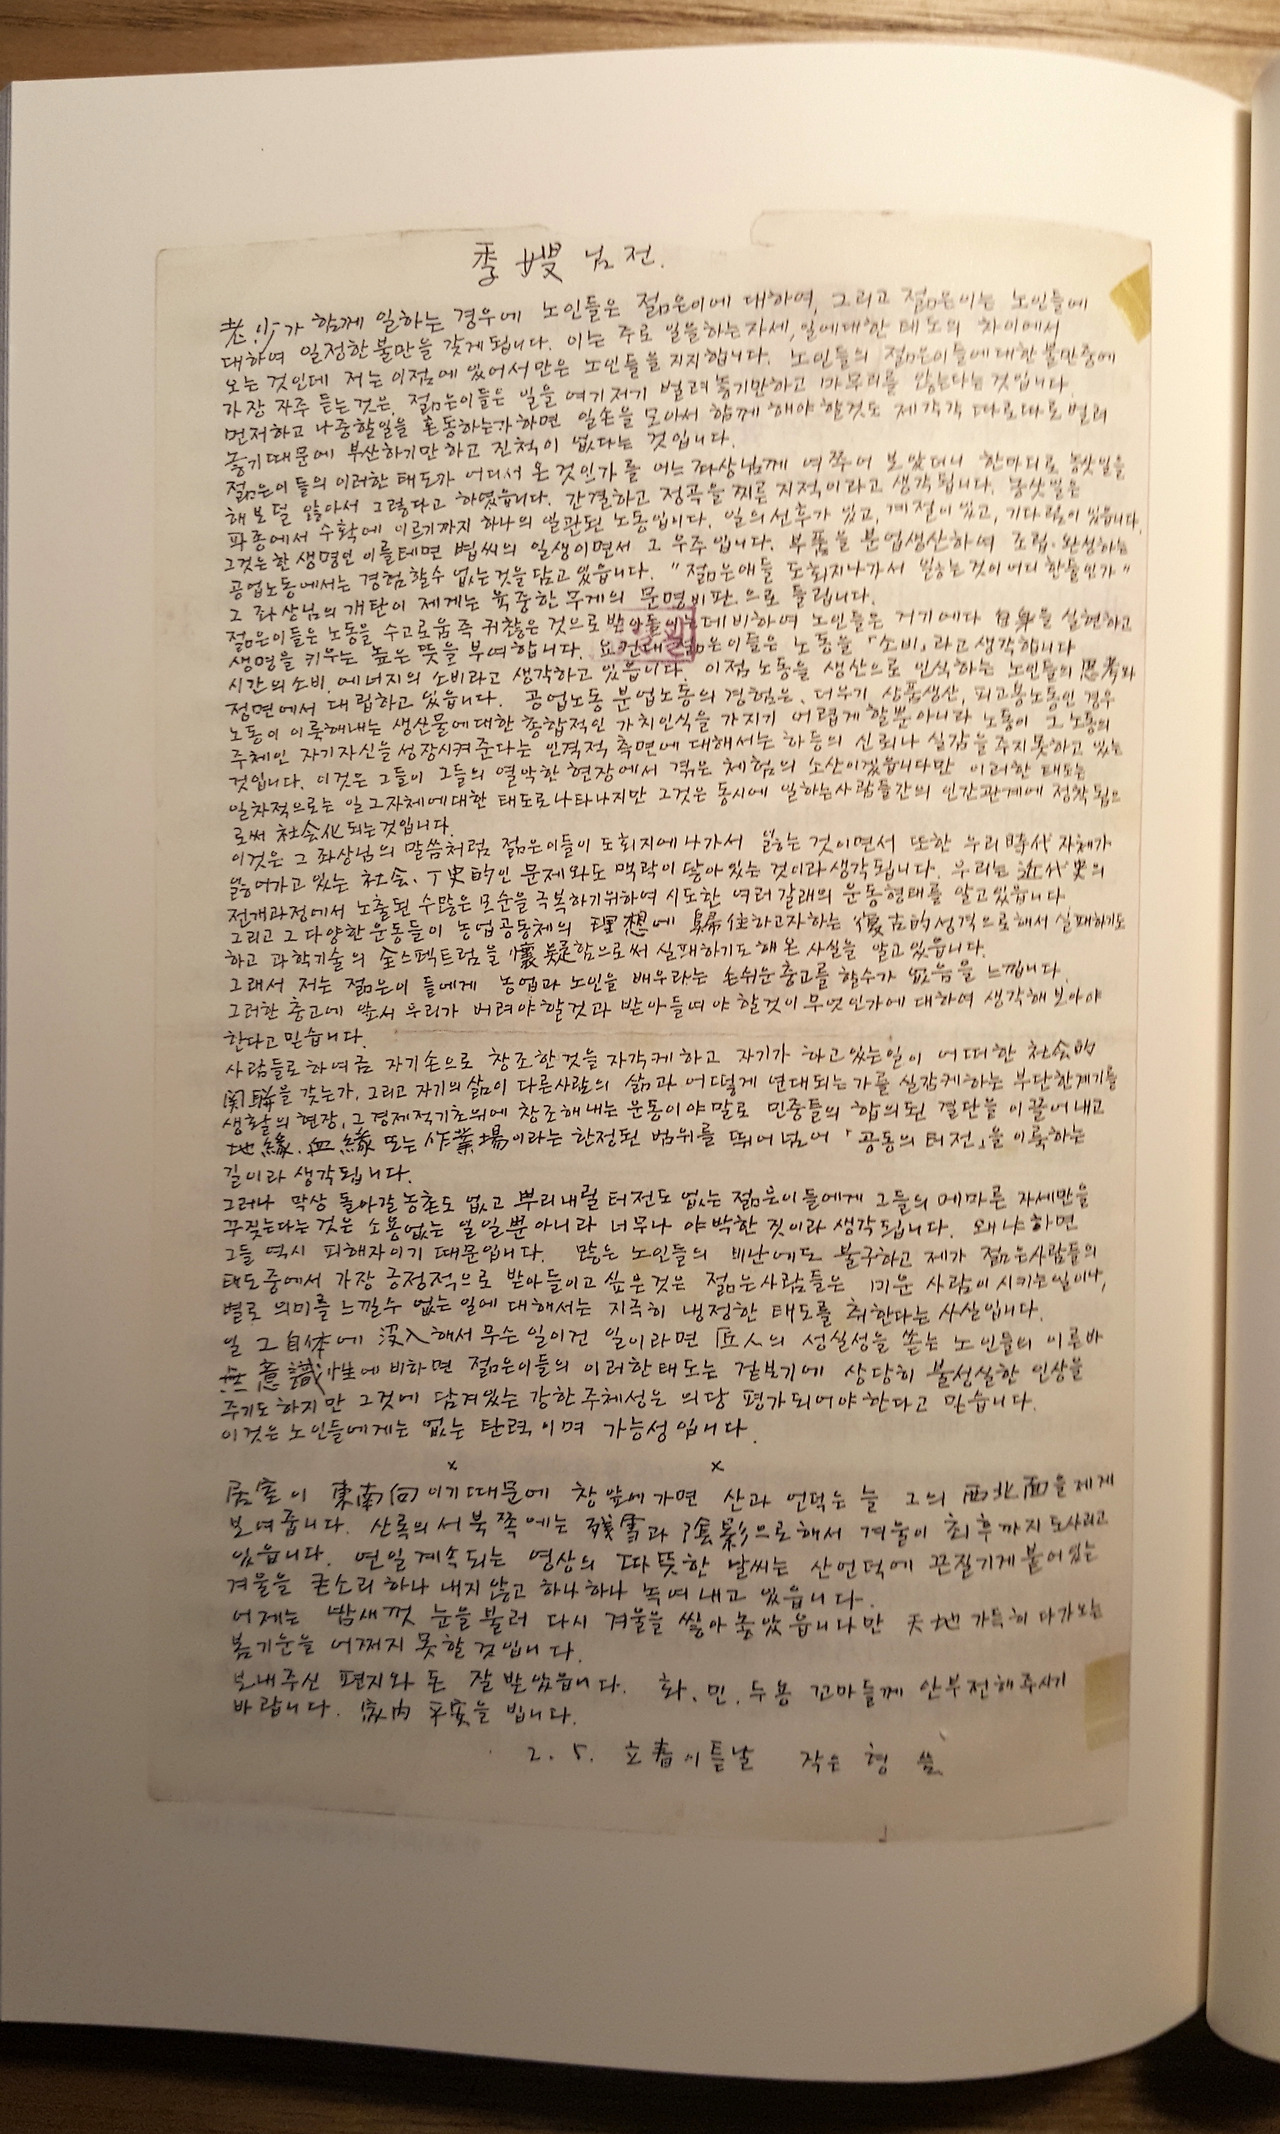 季嫂님 전.
老少가 함께 일하는 경우에 노인들은 젊은이에 대하여, 그리고 젊은이는 노인들에
대하여 일정한 불만을 갖게 됩니다. 이는 주로 일을하는 자세, 일에대한 태도의 차이에서
오는 것인데 저는 이점에 있어서만은 노인들을 지지합니다. 노인들의 젊은이들에 대한 불만중에
가장 자주 듣는것은, 젊은이들은 일을 여기저기 벌려 놓기만하고 마무리를 않는다는 것입니다.
먼저하고 나중할일을 혼동하는가하면 일손을 모아서 함께 해야 할것도 제각각 따로따로 벌려
놓기때문에 부산하기만 하고 진척이 없다는 것입니다.
젊은이 들의 이러한 태도가 어디서 온 것인가를 어느 좌상님께 여쭈어 보았더니 한마디로 농삿일을
해보덜 않아서 그렇다고 하였읍니다. 간결하고 정곡을 찌른 지적이라고 생각됩니다. 농삿일은
파종에서 수확에 이르기까지 하나의 일관된 노동입니다. 일의 선후가 있고, 계절이 있고, 기다림이 있읍니다.
그것은 한 생명인 이를테면 볍씨의 일생이면서 그 우주입니다. 부품을 분업생산하여 조립·완성하는
공업노동에서는 경험할수 없는것을 담고 있읍니다. "젊은애들 도회지나가서 잃는 것이 어디 한둘인가"
그 좌상님의 개탄이 제게는 육중한 무게의 문명비판으로 들립니다.
젊은이들은 노동을 수고로움 즉 귀찮은 것으로 받아들이는데 비하여 노인들은 거기에다 自身을 실현하고
생명을 키우는 높은 뜻을 부여합니다. 요컨대 젊은이들은 노동을 「소비」라고 생각합니다
시간의 소비, 에너지의 소비라고 생각하고 있읍니다. 이점 노동을 생산으로 인식하는 노인들의 思考와
정면에서 대립하고 있읍니다. 공업노동 분업노동의 경험은, 더우기 상품생산, 피고용노동인 경우
노동이 이룩해내는 생산물에대한 총합적인 가치인식을 가지기 어렵게 할뿐아니라 노동이 그 노동의
주체인 자기자신을 성장시켜준다는 인격적 측면에 대해서는 하등의 신뢰나 실감을 주지못하고 있는
것입니다. 이것은 그들이 그들의 열악한 현장에서 겪은 체험의 소산이겠읍니다만 이러한 태도는
일차적으로는 일 그자체에대한 태도로 나타나지만 그것은 동시에 일하는사람들간의 인간관계에 정착됨으
로써 社会化되는것입니다.
이것은 그 좌상님의 말씀처럼 젊은이들이 도회지에 나가서 잃는 것이면서 또한 우리 時代 자체가
잃어가고 있는 社会、丁史的인 문제와도 맥락이 닿아있는 것이라 생각됩니다. 우리는 近代史의
전개과정에서 노출된 수많은 모순을 극복하기위하여 시도한 여러갈래의 운동형태를 알고있읍니다
그리고 그 다양한 운동들이 농업공동체의 理想에 歸住하고자하는 復古的성격으로해서 실패하기도
하고 과학기술의 全스펙트럼을 懷疑함으로써 실패하기도 해온 사실을 알고 있읍니다.
그래서 저는 젊은이 들에게 농업과 노인을 배우라는 손쉬운 충고를 할수가 없음을 느낍니다.
그러한 충고에 앞서 우리가 버려야 할것과 받아들여야 할것이 무엇인가에 대하여 생각해 보아야
한다고 믿습니다.
사람들로 하여금 자기손으로 창조한것을 자각케하고 자기가 하고 있는일이 어떠한 社会的
関聯을 갖는가, 그리고 자기의 삶이 다른사람의 삶과 어떻게 년대되는가를 실감케하는 부단한계기를
생활의 현장, 그 경제적기초위에 창조해내는 운동이야말로 민중들의 합의된 결단을 이끌어내고
地緣, 血緣 또는 作業場이라는 한정된 범위를 뛰어넘어 「공동의 터전」을 이룩하는
길이라 생각됩니다.
그러나 막상 돌아갈 농촌도 없고 뿌리내릴 터전도 없는 젊은이들에게 그들의 메마른 자세만을
꾸짖는다는 것은 소용없는 일일뿐아니라 너무나 야박한 짓이라 생각됩니다. 왜냐하면
그들 역시 피해자이기 때문입니다. 많은 노인들의 비난에도 불구하고 제가 젊은사람들의
태도중에서 가장 긍정적으로 받아들이고 싶은것은 젊은사람들은 미운 사람이 시키는일이나,
별로 의미를 느낄수 없는 일에 대해서는 지극히 냉정한 태도를 취한다는 사실입니다.
일 그 自体에 沒入해서 무슨 일이건 일이라면 匠人의 성실성을 쏟는 노인들의 이른바
無意識性에 비하면 젊은이들의 이러한태도는 겉보기에 상당히 불성실한 인상을
주기도 하지만 그것에 담겨있는 강한주체성은 의당 평가되어야한다고 믿습니다.
이것은 노인들에게는 없는 탄력이며 가능성입니다.
× ×
居室이 東南向이기때문에 창앞에가면 산과 언덕은 늘 그의 西北面을 제게
보여줍니다. 산록의 서북쪽에는 殘雪과 陰影으로해서 겨울이 최후까지 도사리고
있읍니다. 연일계속되는 영상의 따뜻한 날씨는 산언덕에 끈질기게 붙어있는
겨울을 큰소리 하나 내지않고 하나하나 녹여내고 있읍니다.
어제는 밤새껏 눈을 불러 다시 겨울을 쌓아 놓았읍니다만 天地 가득히 다가오는
봄기운을 어쩌지 못할 것입니다.
보내주신 편지와 돈 잘 받았읍니다. 화, 민, 두용 꼬마들께 안부전해주시기
바랍니다. 家內 平安을 빕니다.
2. 5. 立春이튿날 작은 형 씀